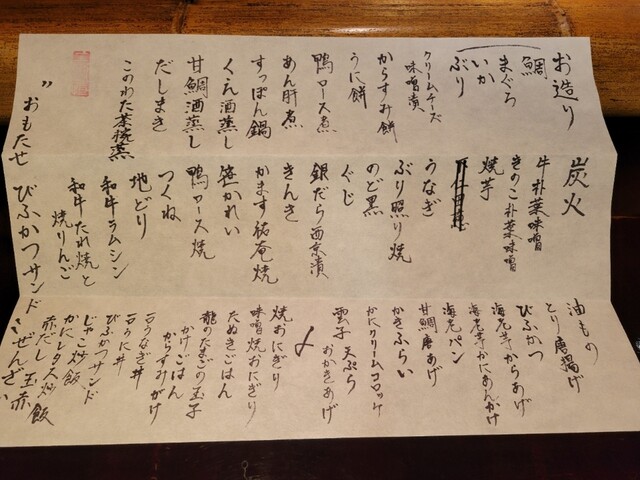 お造り
鯛
まぐろ
いか
ぶり
クリームチーズ
味噌漬
からすみ餅
うに餅
鴨ロース煮
あん肝煮
すっぽん鍋
くえ酒蒸し
甘鯛酒蒸し
だしまき
このわた茶碗蒸
〃おもたせ
びふかつサンド
炭火
牛朴葉味噌
きのこ朴葉味噌
焼芋
うなぎ
ぶり照り焼
のど黒
ぐじ
銀だら西京漬
きんき
かます祐庵焼
笹かれい
鴨ロース焼
つくね
地どり
和牛ラムシン
和牛たれ焼と
焼りんご
油もの
とり唐揚げ
びふかつ
海老芋からあげ
海老芋かにあんかけ
海老パン
甘鯛唐あげ
かきふらい
かにクリームコロッケ
雲子 天ぷら
おかきあげ
〆
焼おにぎり
味噌焼おにぎり
たぬきごはん
龍のたまごの玉子
かけごはん
からすみがけ
うなぎ丼
うに丼
びふかつサンド
じゃこ炒飯
かにレタス炒飯
赤だし 玉赤
ぜんざい